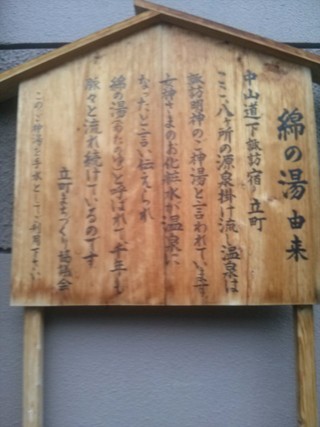 綿の湯 由来
中山道下諏訪宿 立町
ここ八ヶ所の源泉掛け流し温泉は
諏訪明神のご神湯と言われています
女神さまのお化粧水が温泉に
なったと言い伝えられ
綿の湯 と呼ばれて 千年も
脈々と流れ続けているのです
立町まちづくり協議会
このご神湯を手水としてご利用下さい